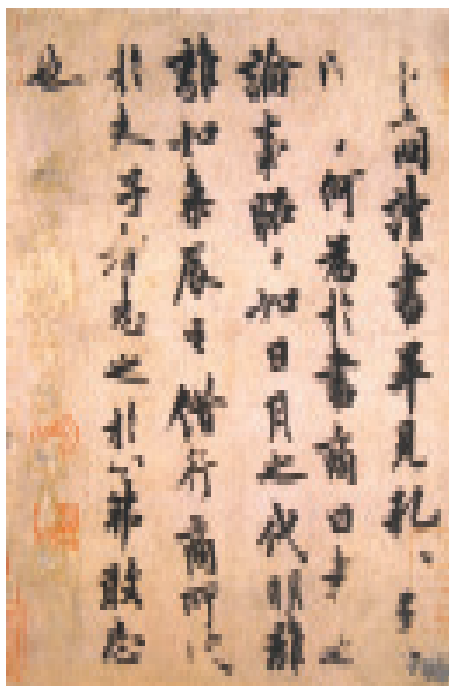 卜商讀書畢見孔子
何為於書商曰書之
論事昭〻如日月之代明離
離如參辰之錯行商所
於夫子者志之於心弗敢忘
也